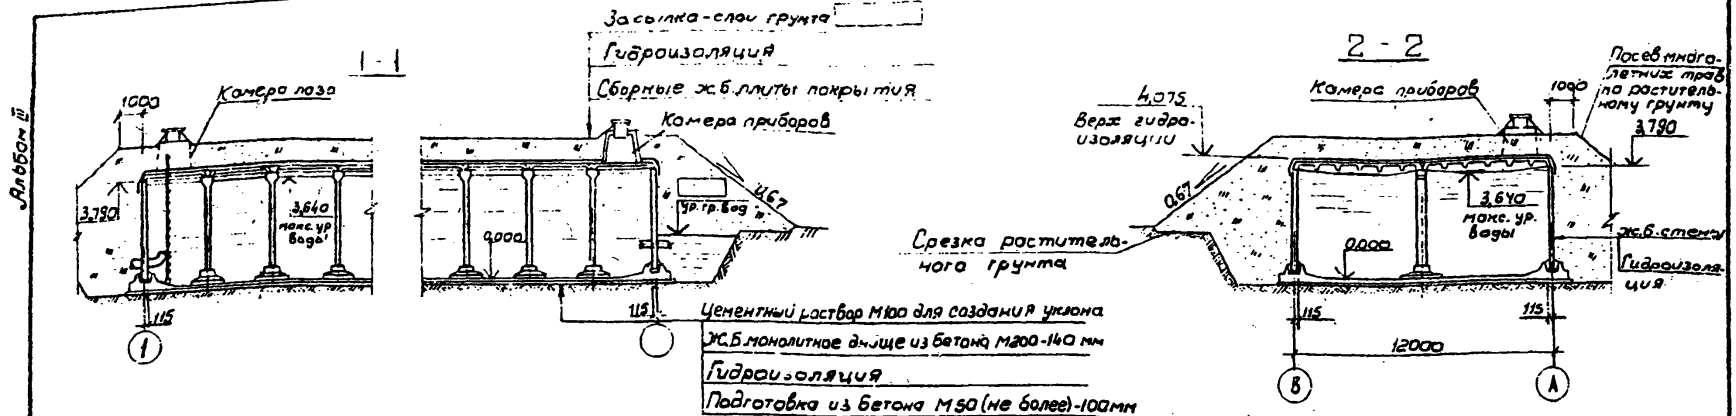 Альбом III
1-1
1000
Камера лаза
3,790
3,640
макс. ур.
воды
0,000
115
1
Засыпка-слой грунта
Гидроизоляция
Сборные ж.б. плиты покрытия
Камера приборов
0,67
ур. гр. вод
115
Цементный раствор М100 для создания уклона
Ж.Б. монолитное днище из бетона М200-140 мм
Гидроизоляция
Подготовка из бетона М50 (не более)-100мм
2-2
4,075
Верх гидро-
изоляции
Камера приборов
1000
Посев много-
летних трав
по раститель-
ному грунту
3,790
0,67
3,640
макс. ур.
воды
0,000
Срезка раститель-
ного грунта
ж.б. стены
Гидроизоля-
ция
115
115
12000
В
А